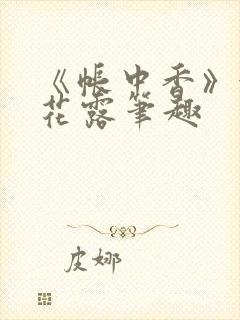 《帐中香》
花露笔趣
皮娜